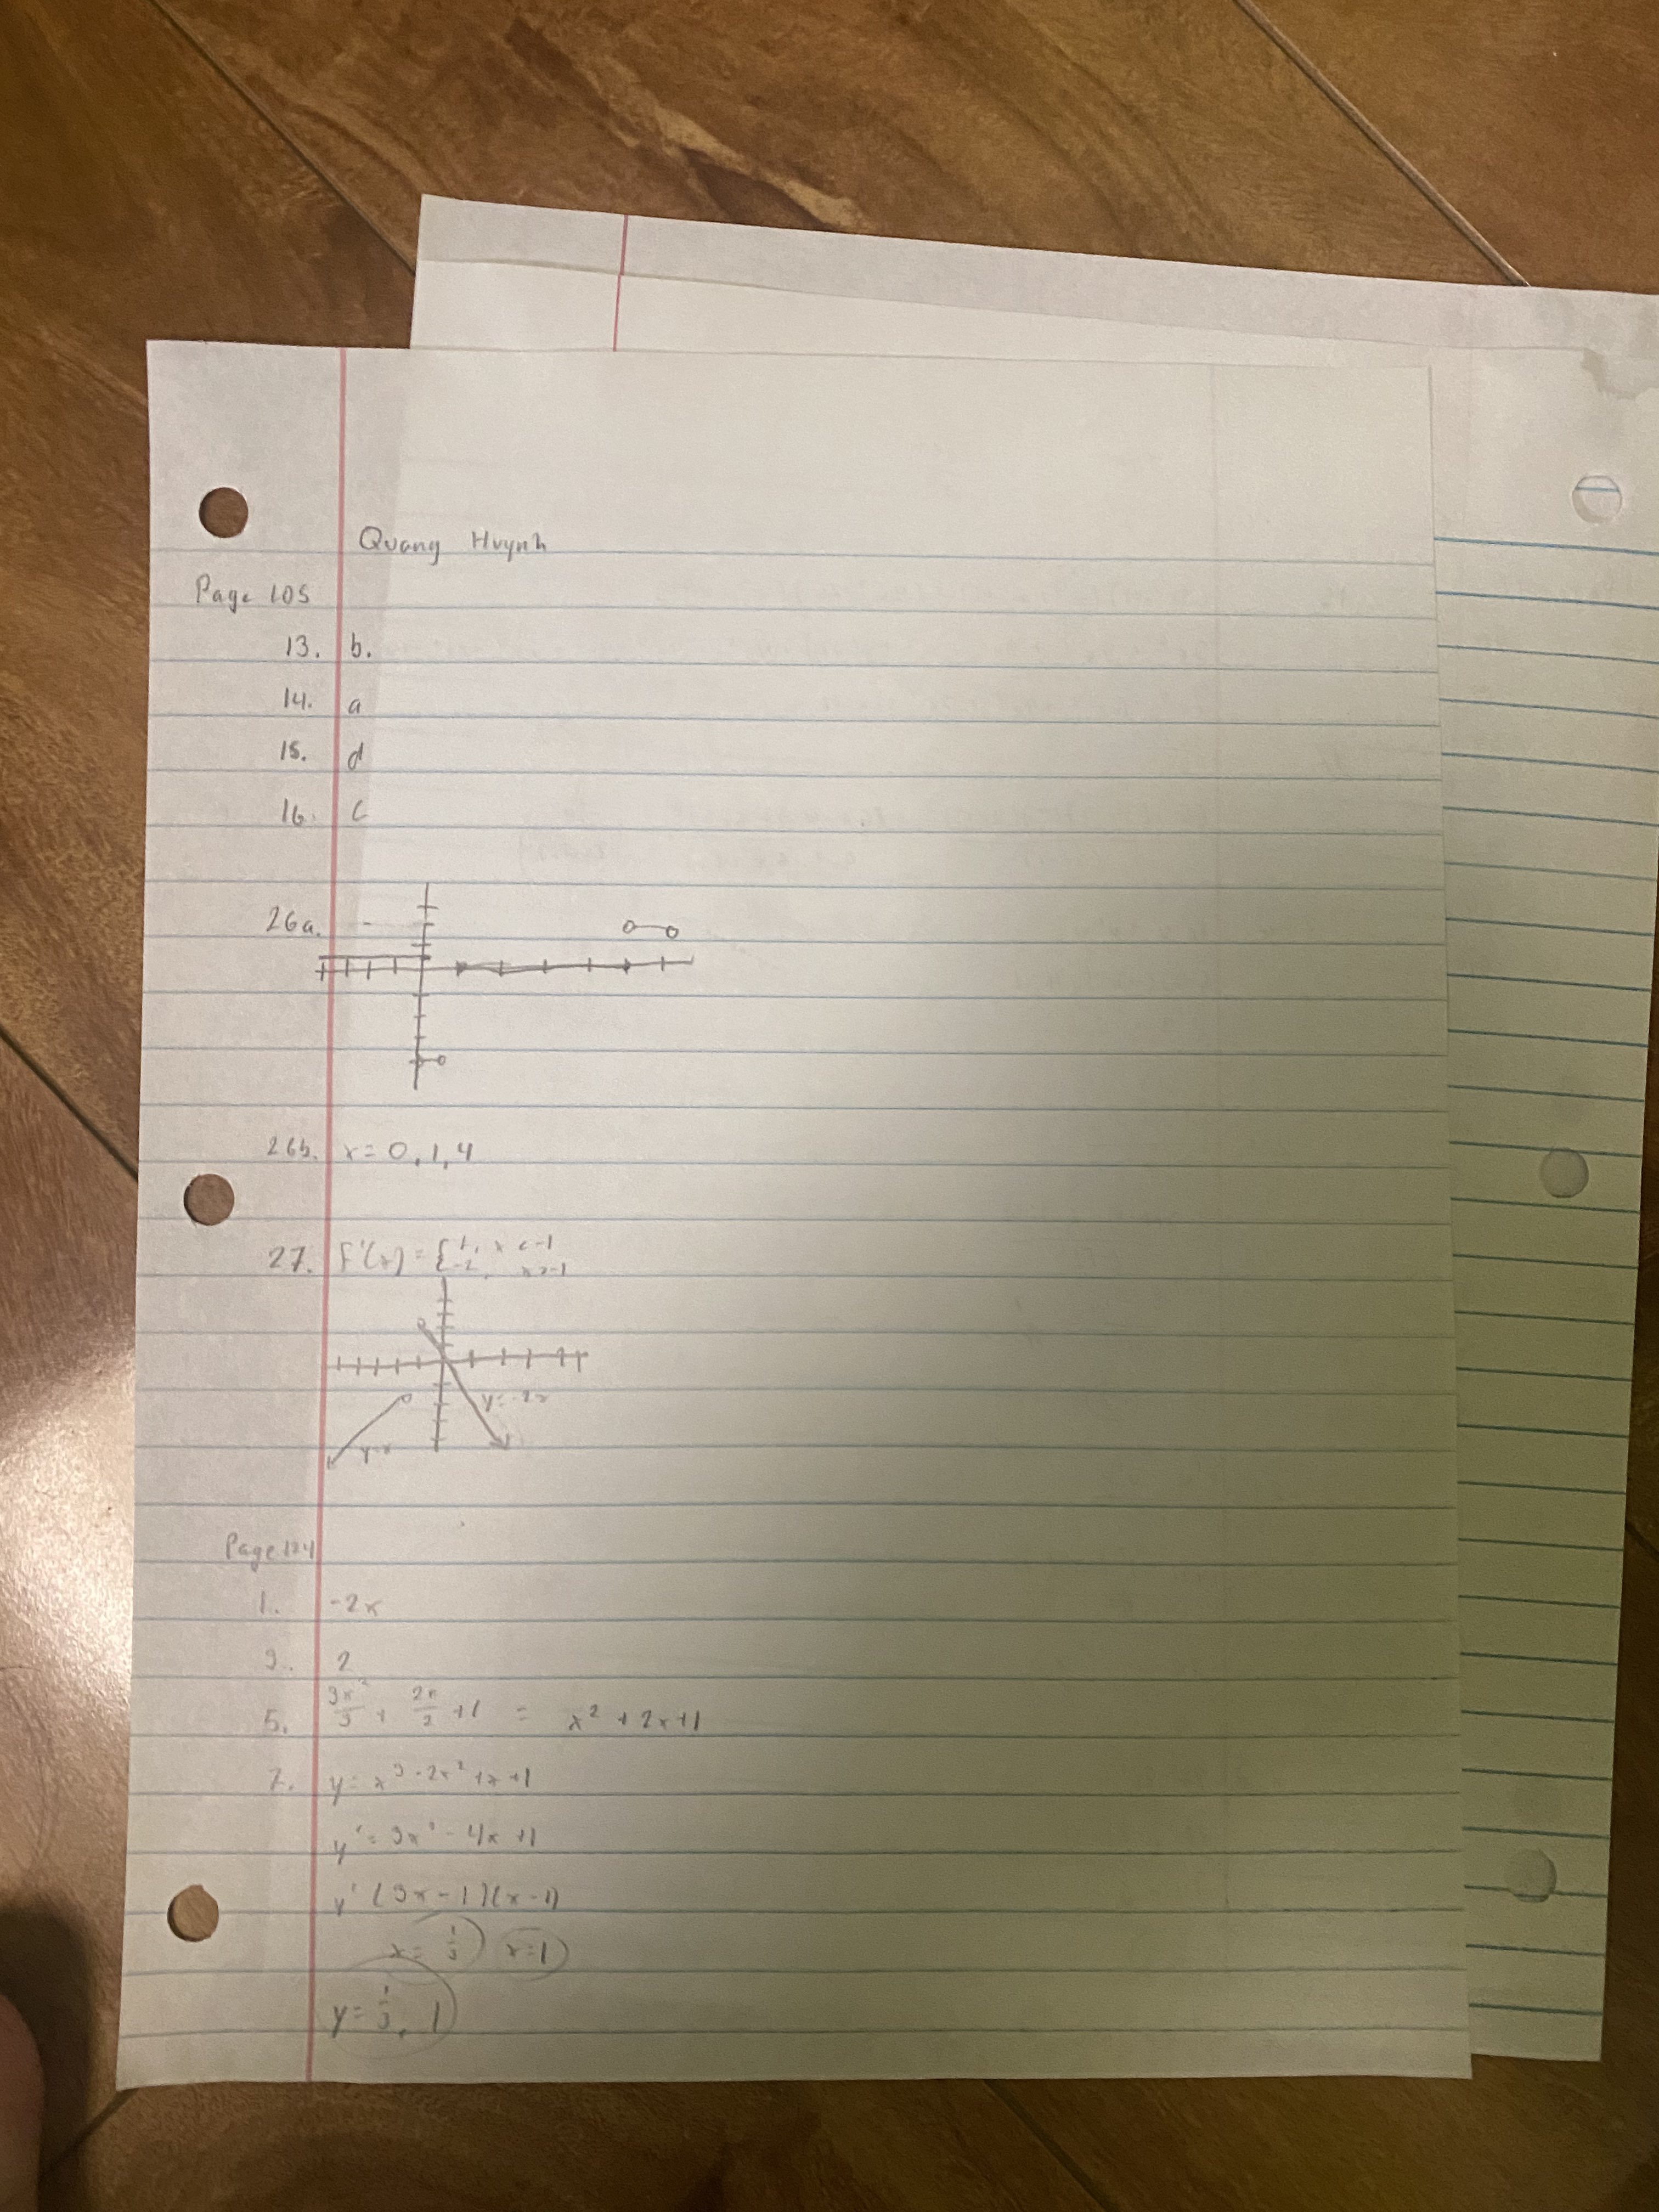 Quang Huynh
Page 105
13. b.
14. a
15. d
16. c
26a.
26b. x = 0, 1, 4
27. f'(x) = { 1, x < -1
-2, x > -1
y = -2x
y = x
Page 124
1. -2x
3. 2
5. 3x²/3 + 2x/2 + 1 = x² + 2x + 1
7. y = x³ - 2x² + x + 1
y' = 3x² - 4x + 1
y' (3x - 1)(x - 1)
x = 1/3 x = 1
y = 1/3, 1